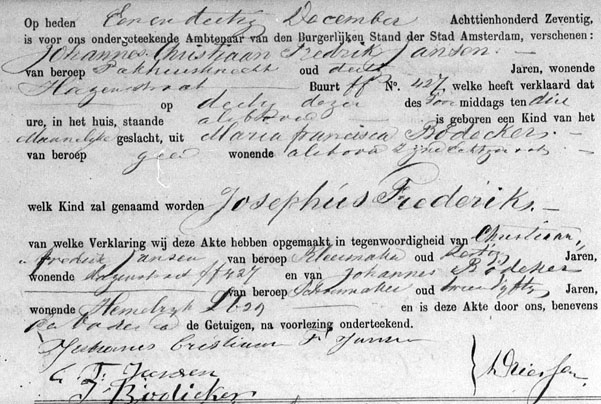 Op heden Een en dertig December Achttienhonderd Zeventig,
is voor ons ondergeteekende Ambtenaar van den Burgerlijken Stand der Stad Amsterdam, verschenen:
Johannes Christiaan Fredrik Jansen
van beroep Pakhuisknecht oud Jaren, wonende
Hazenstraat Buurt ff No. 427, welke heeft verklaard dat
op dezer des Voor middags ten drie
ure, in het huis, staande alsboven is geboren een Kind van het
Mannelijke geslacht, uit Maria Francisca Bödeckers
van beroep geen wonende alsboven zijne
welk Kind zal genaamd worden Josephus Frederik
van welke Verklaring wij deze Akte hebben opgemaakt in tegenwoordigheid van Christiaan
Fredrik Jansen van beroep oud zestig Jaren,
wonende Hazenstraat ff 427 en van Johannes Bödeker
van beroep Schoenmaker oud Jaren,
wonende en is deze Akte door ons, benevens
de Getuigen, na voorlezing onderteekend.
Johannes Cristiaan F Jansen
C F Jansen
J Bödicker
Driessen